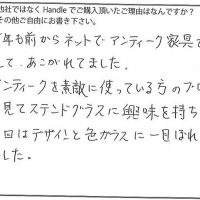 他社ではなく Handle でご購入頂いたご理由はなんですか？
その他ご自由にお書き下さい。
年も前からネットでアンティーク家具で
して、あこがれてました。
ンティークを素敵に使っている方のブロ
見てステンドグラスに興味を持ち
日はデザインと色ガラスに一目ぼれ
した。